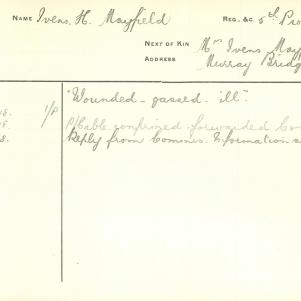 NAME Ivens, H. Mayfield
REG. &C. 5th Pro
NEXT OF KIN Mrs Ivens May
ADDRESS Murray Bridg
"Wounded - gassed - ill"
1/P P/Cable confirmed forwarded Co
8. Reply from Commrs. Information s